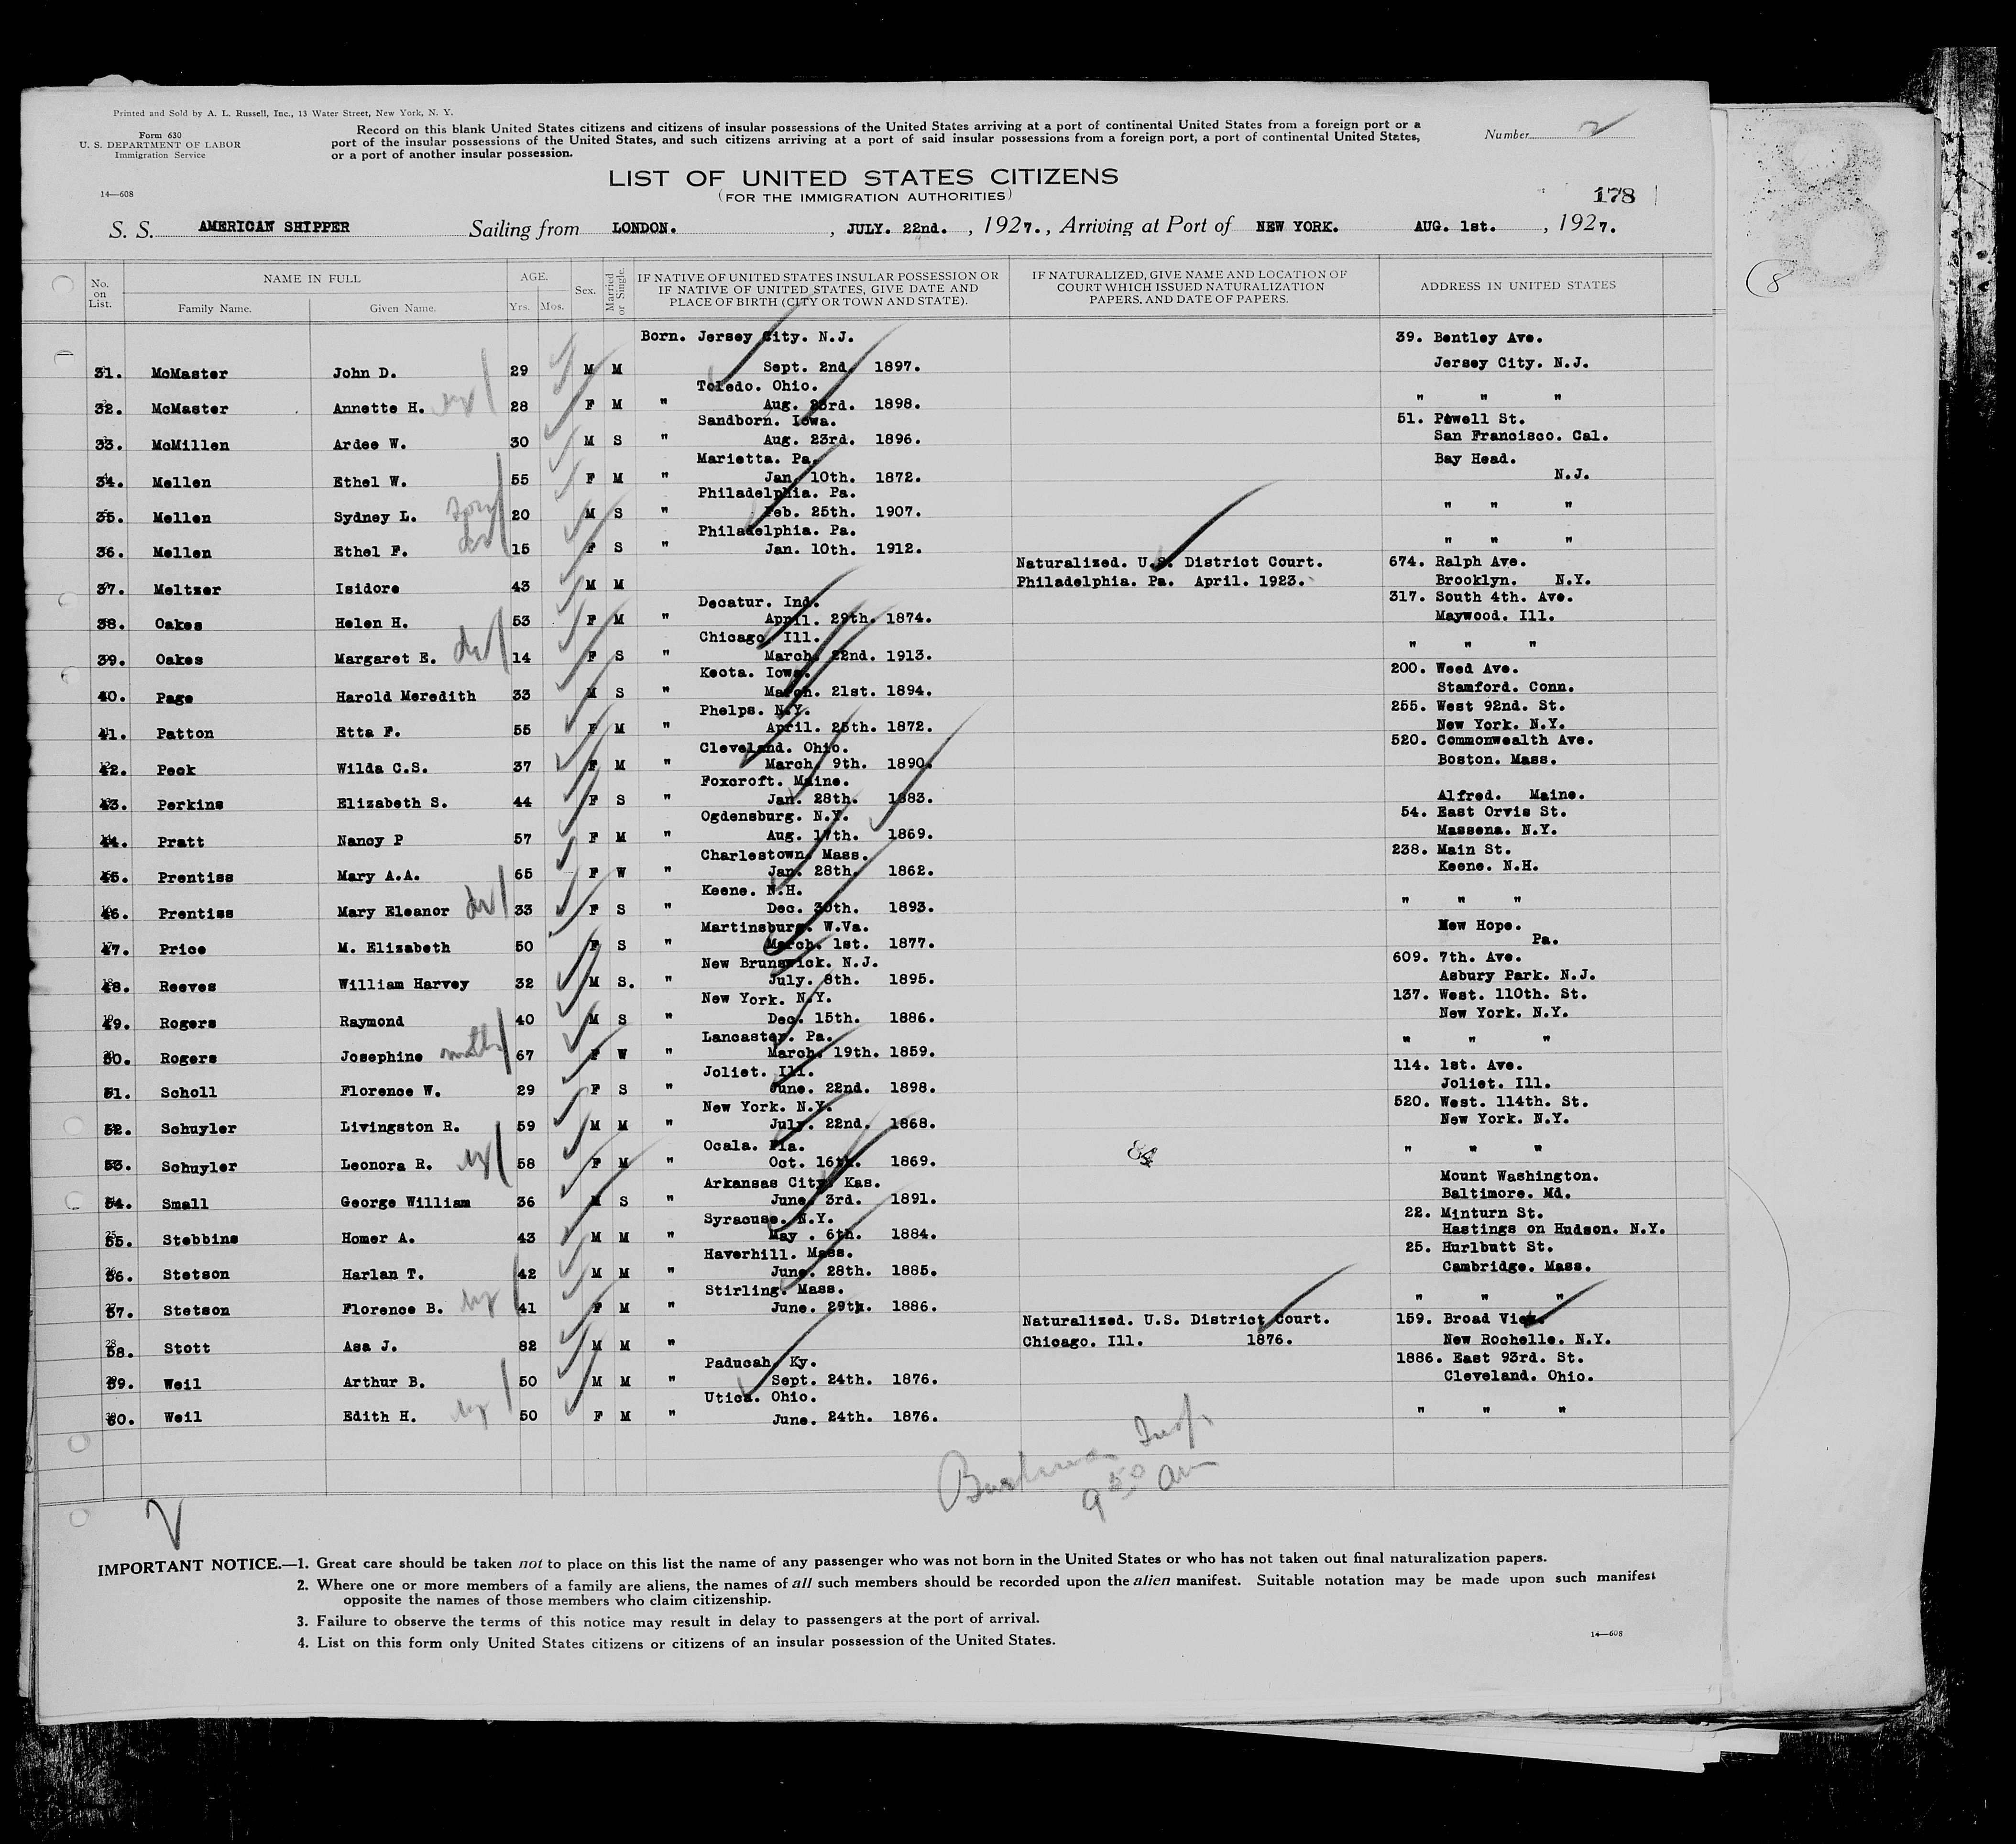 Printed and Sold by A. L. Russell, Inc., 13 Water Street, New York, N. Y.
Form 630
U. S. DEPARTMENT OF LABOR
Immigration Service
14—608
Record on this blank United States citizens and citizens of insular possessions of the United States arriving at a port of continental United States from a foreign port or a
port of the insular possessions of the United States, and such citizens arriving at a port of said insular possessions from a foreign port, a port of continental United States,
or a port of another insular possession.
Number 2
LIST OF UNITED STATES CITIZENS
(FOR THE IMMIGRATION AUTHORITIES)
178
S. S. AMERICAN SHIPPER Sailing from LONDON. , JULY. 22nd. , 1927. , Arriving at Port of NEW YORK. AUG. 1st. , 1927.
8
No. on List. NAME IN FULL Family Name. Given Name. AGE. Yrs. Mos. Sex. Married or Single. IF NATIVE OF UNITED STATES INSULAR POSSESSION OR IF NATIVE OF UNITED STATES, GIVE DATE AND PLACE OF BIRTH (CITY OR TOWN AND STATE). IF NATURALIZED, GIVE NAME AND LOCATION OF COURT WHICH ISSUED NATURALIZATION PAPERS, AND DATE OF PAPERS. ADDRESS IN UNITED STATES
Born. Jersey City. N.J. 39. Bentley Ave.
31. McMaster John D. 29 M M Sept. 2nd. 1897. Jersey City. N.J.
Toledo. Ohio.
32. McMaster Annette H. 28 F M " Aug. 23rd. 1898. " " "
Sandborn. Iowa. 51. Powell St.
33. McMillen Ardee W. 30 M S " Aug. 23rd. 1896. San Francisco. Cal.
Marietta. Pa. Bay Head.
34. Mellen Ethel W. 55 F M " Jan. 10th. 1872. N.J.
Philadelphia. Pa.
35. Mellen Sydney L. 20 M S " Feb. 25th. 1907. " " "
Philadelphia. Pa.
36. Mellen Ethel F. 15 F S " Jan. 10th. 1912. " " "
Naturalized. U.S. District Court. 674. Ralph Ave.
37. Meltzer Isidore 43 M M Philadelphia. Pa. April. 1923. Brooklyn. N.Y.
Decatur. Ind. 317. South 4th. Ave.
38. Oakes Helen H. 53 F M " April. 29th. 1874. Maywood. Ill.
Chicago. Ill.
39. Oakes Margaret E. 14 F S " March. 22nd. 1913. " " "
Keota. Iowa. 200. Weed Ave.
40. Page Harold Meredith 33 M S " March. 21st. 1894. Stamford. Conn.
Phelps. N.Y. 255. West 92nd. St.
41. Patton Etta F. 55 F M " April. 25th. 1872. New York. N.Y.
Cleveland. Ohio. 520. Commonwealth Ave.
42. Peck Wilda C.S. 37 F M " March. 9th. 1890. Boston. Mass.
Foxcroft. Maine.
43. Perkins Elizabeth S. 44 F S " Jan. 28th. 1883. Alfred. Maine.
Ogdensburg. N.Y. 54. East Orvis St.
44. Pratt Nancy P 57 F M " Aug. 17th. 1869. Massena. N.Y.
Charlestown. Mass. 238. Main St.
45. Prentiss Mary A.A. 65 F W " Jan. 28th. 1862. Keene. N.H.
Keene. N.H.
46. Prentiss Mary Eleanor 33 F S " Dec. 30th. 1893. " " "
Martinsburg. W.Va. New Hope.
47. Price M. Elizabeth 50 F S " March. 1st. 1877. Pa.
New Brunswick. N.J. 609. 7th. Ave.
48. Reeves William Harvey 32 M S. " July. 8th. 1895. Asbury Park. N.J.
New York. N.Y. 137. West. 110th. St.
49. Rogers Raymond 40 M S " Dec. 15th. 1886. New York. N.Y.
Lancaster. Pa.
50. Rogers Josephine 67 F W " March. 19th. 1859. " " "
Joliet. Ill. 114. 1st. Ave.
51. Scholl Florence W. 29 F S " June. 22nd. 1898. Joliet. Ill.
New York. N.Y. 520. West. 114th. St.
52. Schuyler Livingston R. 59 M M " July. 22nd. 1868. New York. N.Y.
Ocala. Fla.
53. Schuyler Leonora R. 58 F M " Oct. 16th. 1869. " " "
Arkansas City. Kas. Mount Washington.
54. Small George William 36 M S " June. 3rd. 1891. Baltimore. Md.
Syracuse. N.Y. 22. Minturn St.
55. Stebbins Homer A. 43 M M " May . 6th. 1884. Hastings on Hudson. N.Y.
Haverhill. Mass. 25. Hurlbutt St.
56. Stetson Harlan T. 42 M M " June. 28th. 1885. Cambridge. Mass.
Stirling. Mass.
57. Stetson Florence B. 41 F M " June. 29th. 1886. " " "
Naturalized. U.S. District Court. 159. Broad View.
58. Stott Asa J. 82 M M " Chicago. Ill. 1876. New Rochelle. N.Y.
Paducah. Ky. 1886. East 93rd. St.
59. Weil Arthur B. 50 M M " Sept. 24th. 1876. Cleveland. Ohio.
Utica. Ohio.
60. Weil Edith H. 50 F M " June. 24th. 1876. " " "
9 50 am
IMPORTANT NOTICE.—1. Great care should be taken not to place on this list the name of any passenger who was not born in the United States or who has not taken out final naturalization papers.
2. Where one or more members of a family are aliens, the names of all such members should be recorded upon the alien manifest. Suitable notation may be made upon such manifest
opposite the names of those members who claim citizenship.
3. Failure to observe the terms of this notice may result in delay to passengers at the port of arrival.
4. List on this form only United States citizens or citizens of an insular possession of the United States.
14—608